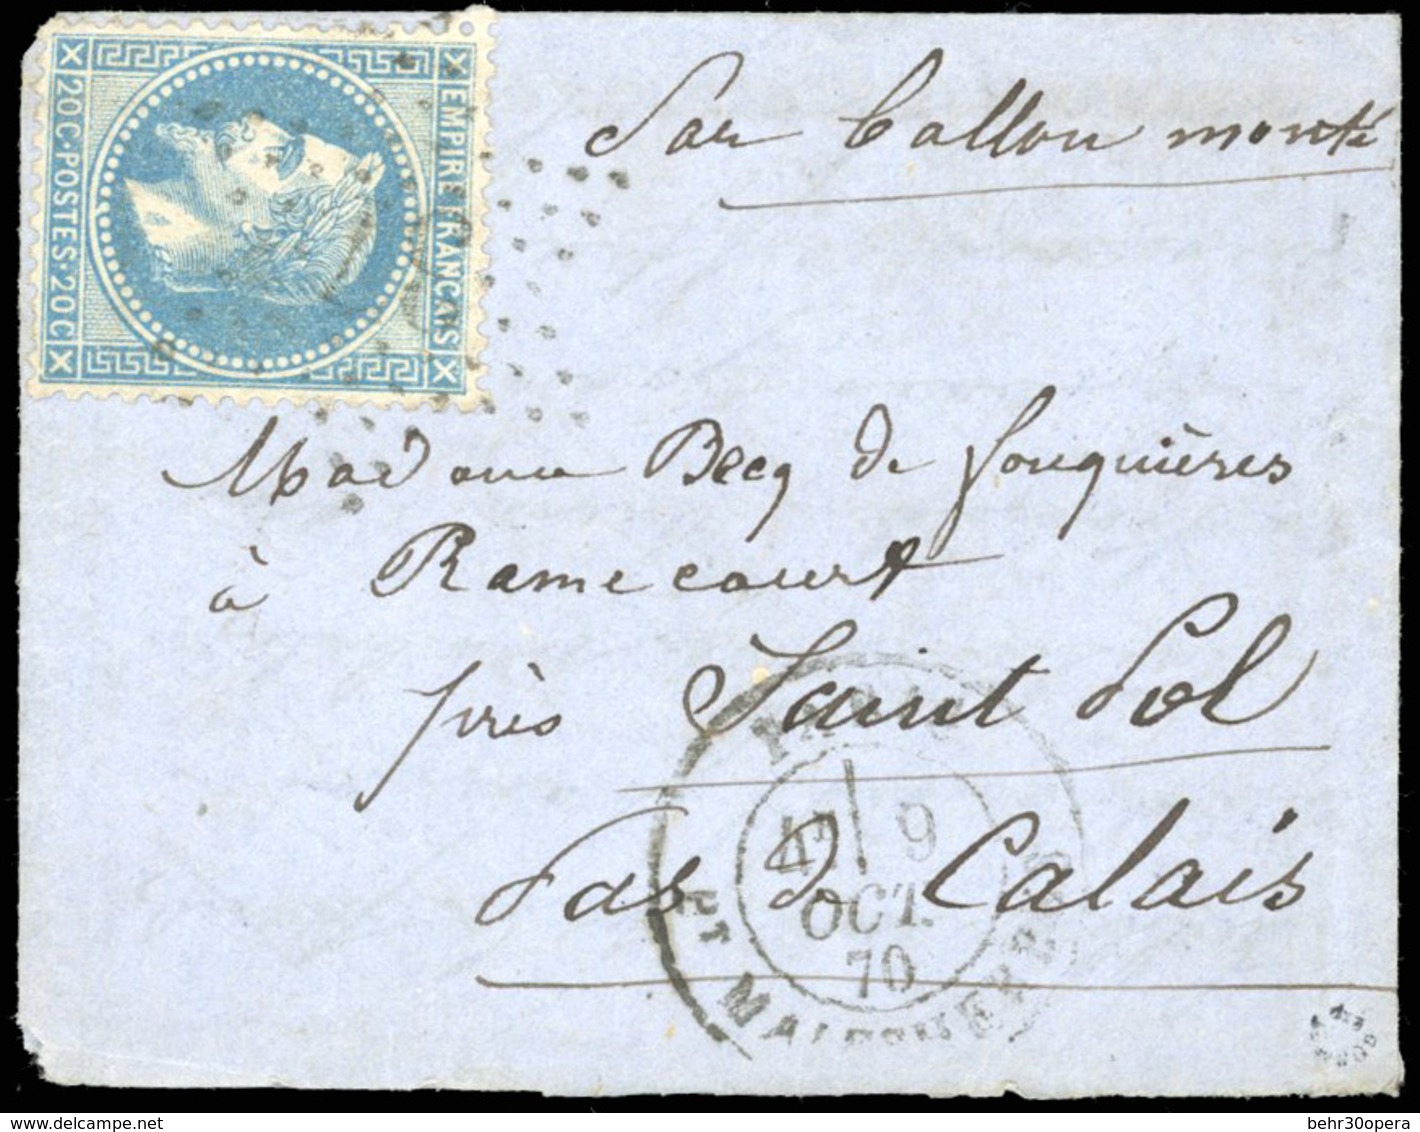 EMPIRE FRANCAIS
20C·POSTES·20C
Par ballon monté
Madame Becq de fouquières
à Ramecourt
près Saint Pol
Pas de Calais
PARIS
9
OCT.
70
PT MALESHERBES
behr30opera